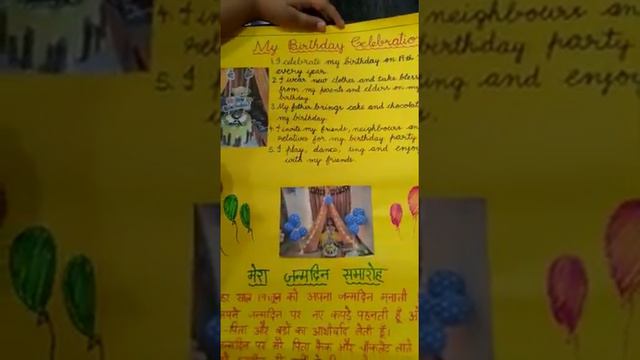 My Birthday Celebration
1. I celebrate my birthday on 19th
every year.
2. I wear new clothes and take bless
from my parents and elders on my
birthday.
3. My father brings cake and chocolat
my birthday.
4. I invite my friends, neighbours an
relatives for my birthday party
5. I play, dance, sing and enjoy
with my friends.
मेरा जन्मदिन समारोह
हर साल को अपना जन्मदिन मनाती
अपने जन्मदिन पर नए कपड़े पहनती हूँ औ
-पिता और बड़ों का आशीर्वाद लेती हूँ।
जन्मदिन पर मेरे पिता केक और चॉकलेट लाते